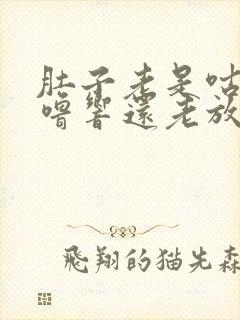 肚子老是咕
嚕響還老放
飛翔的猫先森